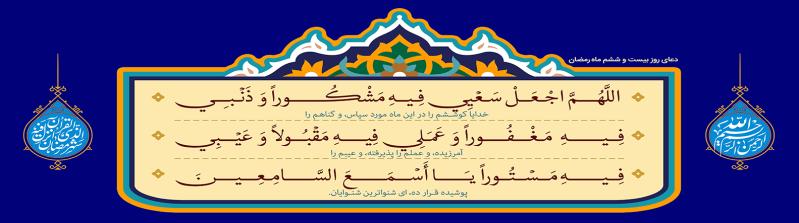 دعای روز بیست و ششم ماه رمضان
اللَّهُمَّ اجْعَلْ سَعْيِي فِيهِ مَشْكُوراً وَ ذَنْبِي
خدایا کوششم را در این ماه مورد سپاس، و گناهم را
فِيهِ مَغْفُوراً وَ عَمَلِي فِيهِ مَقْبُولاً وَ عَيْبِي
آمرزیده، و عملم را پذیرفته، و عیبم را
فِيهِ مَسْتُوراً يَا أَسْمَعَ السَّامِعِينَ
پوشیده قرار ده، ای شنواترین شنوایان.
بسم الله الرحمن الرحیم